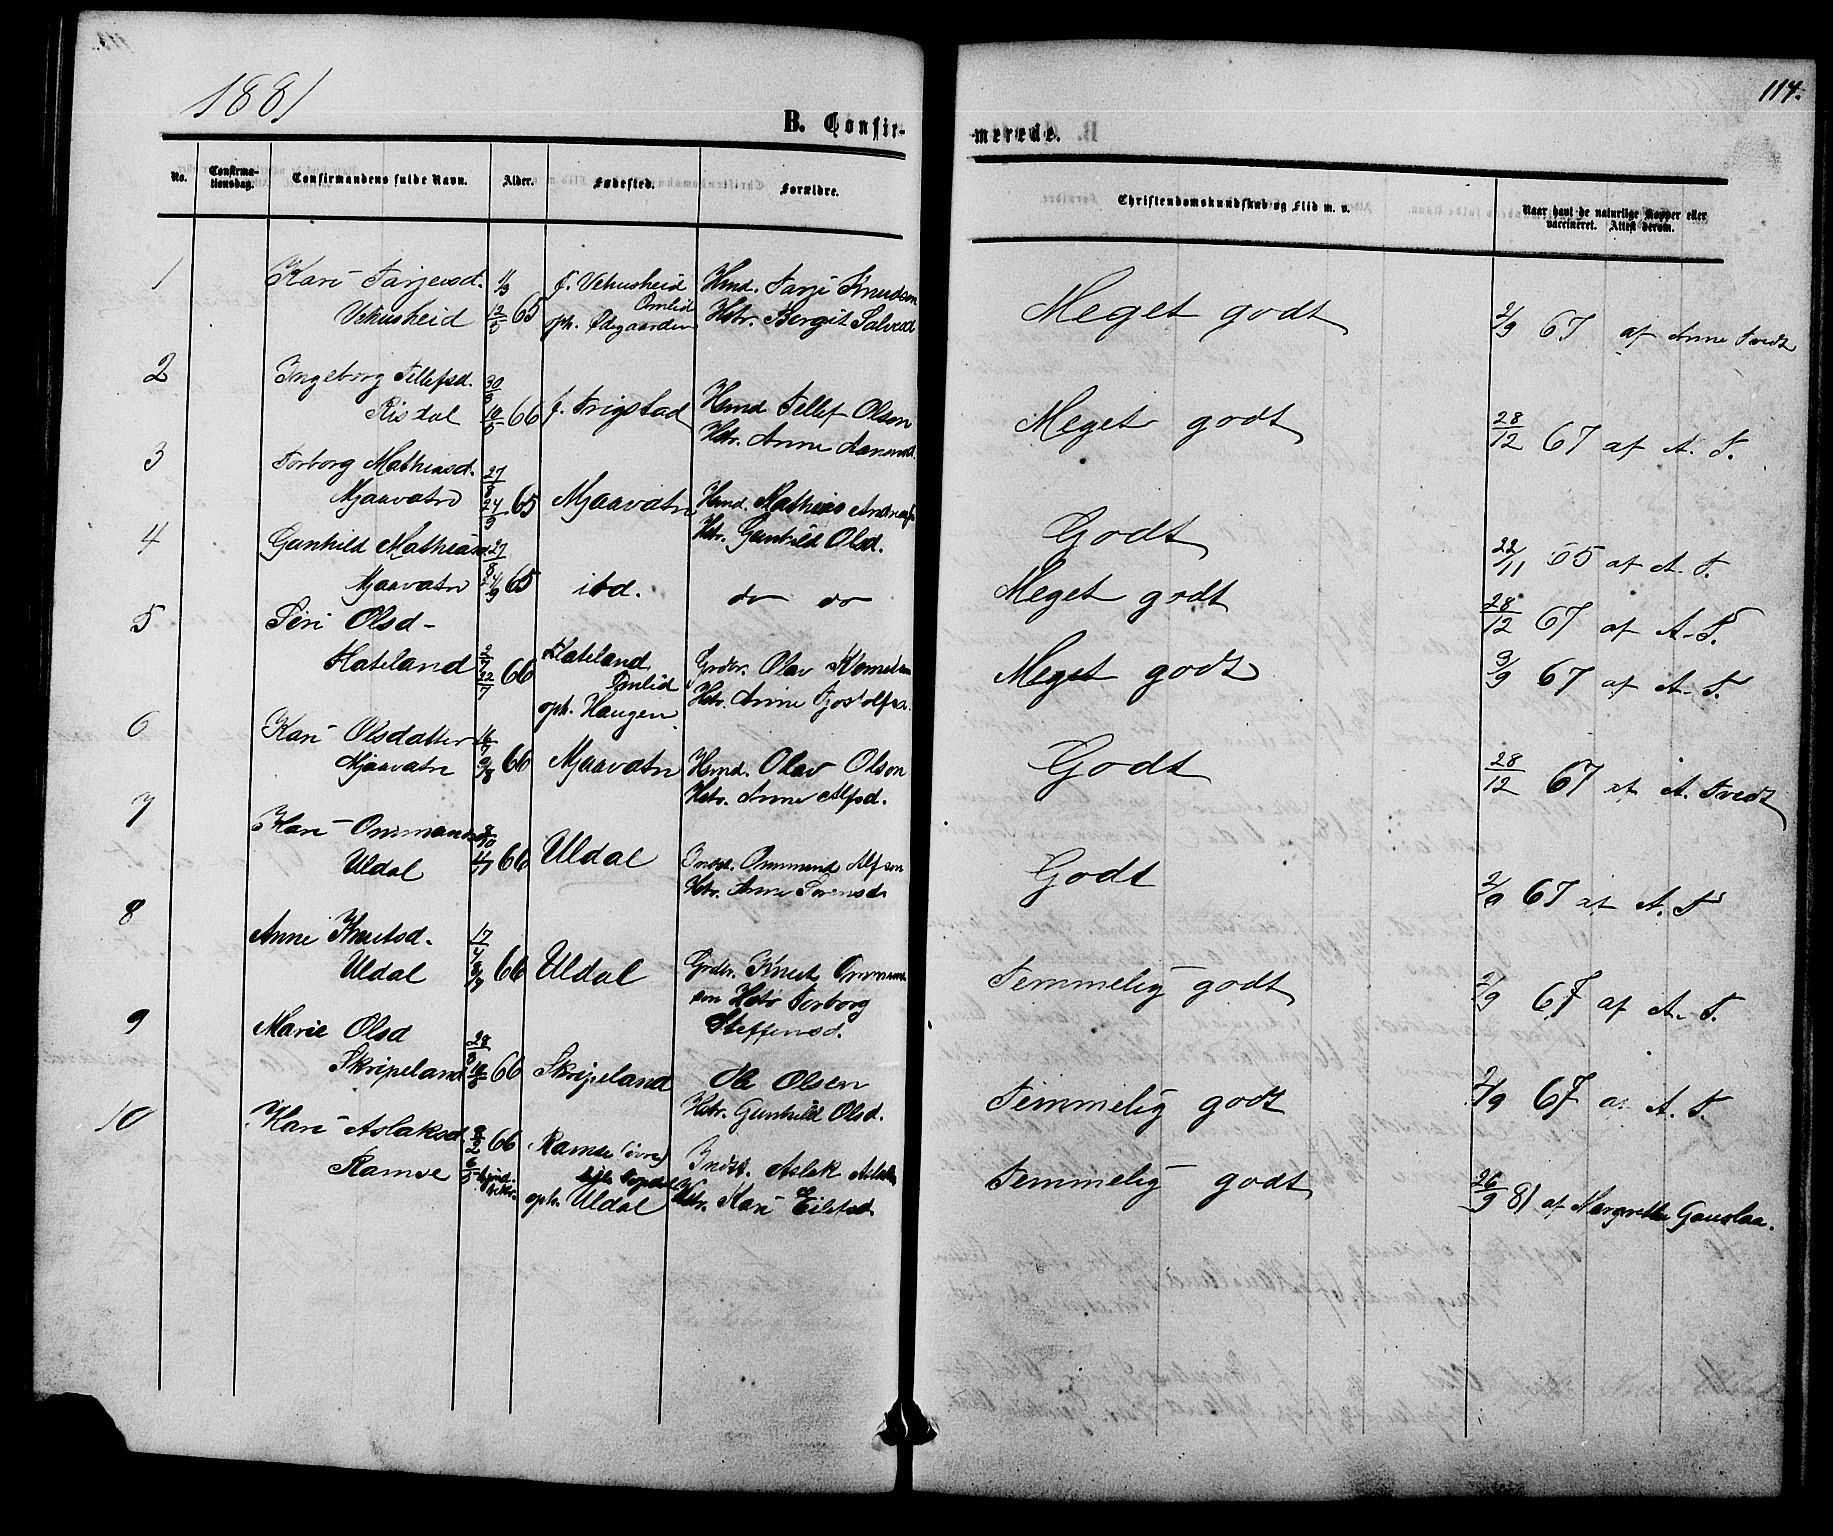 1881
114.
B. Confir-
merede.
No.
Confirma-
tionsdag.
Confirmandens fulde Navn.
Alder.
Fødested.
Forældre.
Christendomskundskab og Flid m. v.
Naar havt de naturlige Kopper eller
vaccineret. Attest derom.
1 Kari Tarjeisd. f. Vehusheid Hmd. Tarje Knudsen
Omlid
Vehusheid 12/5 65 oph. Ødegaarden Hstr. Bergit Salvesd
Meget godt 2/9 67 af Anne Tvedt
2 Ingeborg Tellefsd. 30
Risdal 66 f. Trigstad Hmd Tellef Olson
Hstr. Anne
Meget godt 28/12 67 af A. T.
3 Torborg Mathiasd. 27/8
Mjaavatn 24/9 65 Mjaavatn Hmd. Mathias
Hstr. Gunhild Olsd.
Godt 22/11 65 af A. T.
4 Gunhild Mathiasd 27/8
Mjaavatn 24/9 65 ibd. do do
Meget godt 28/12 67 af A. T.
5 Siri Olsd-
Hateland 22/7 66 Hateland Grdbr. Olav
Omlid Hstr. Anne
oph. Haugen
Meget godt 9/9 67 af A. T.
6 Kari Olsdatter 16/7
Mjaavatn 9/8 66 Mjaavatn Hmd. Olav Olson
Hstr. Anne Alfsd.
Godt 28/12 67 af A. Tvedt
7 Kari 8/10
Uldal 11/11 66 Uldal Indst. Ommund Alfsen
Hstr. Anne
Godt 2/9 67 af A. T
8 Anne Knutsd. 17
Uldal 66 Uldal Grdbr. Knut
son Hstr Torborg
Steffensd.
Temmelig godt 2/9 67 af A. T.
9 Marie Olsd 28
Skripeland 66 Skripeland Ole Olsen
Hstr. Gunhild Olsd.
Temmelig godt 2/9 67 af A. T.
10 Kari Aslaksd. 66 Ramse (øvre) Indst. Aslak
Ramse oph. Uldal Hstr. Kari Eilefsd
Temmelig godt 26/9 81 af Margrethe Gauslaa.